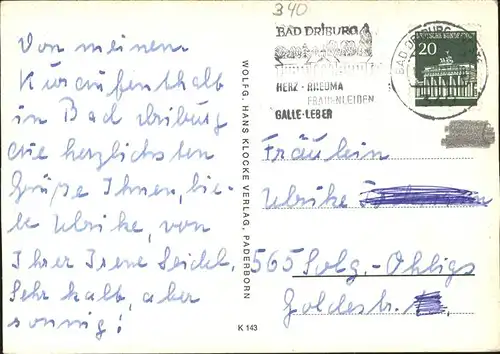 340
BAD DRIBURG
HERZ·RHEUMA
FRAUENLEIDEN
GALLE·LEBER
BAD DRIBURG
DEUTSCHE BUNDESPOST
20
Von meinem
Kuraufenthalt
in Bad Driburg
die herzlichsten
Grüße Ihnen, lie-
be Ulrike, von
Ihrer Irene Seidel.
Sehr kalt, aber
sonnig!
WOLFG. HANS KLOCKE VERLAG, PADERBORN
K 143
Fräulein
Ulrike
565 Solg.-Ohligs
Goldestr.